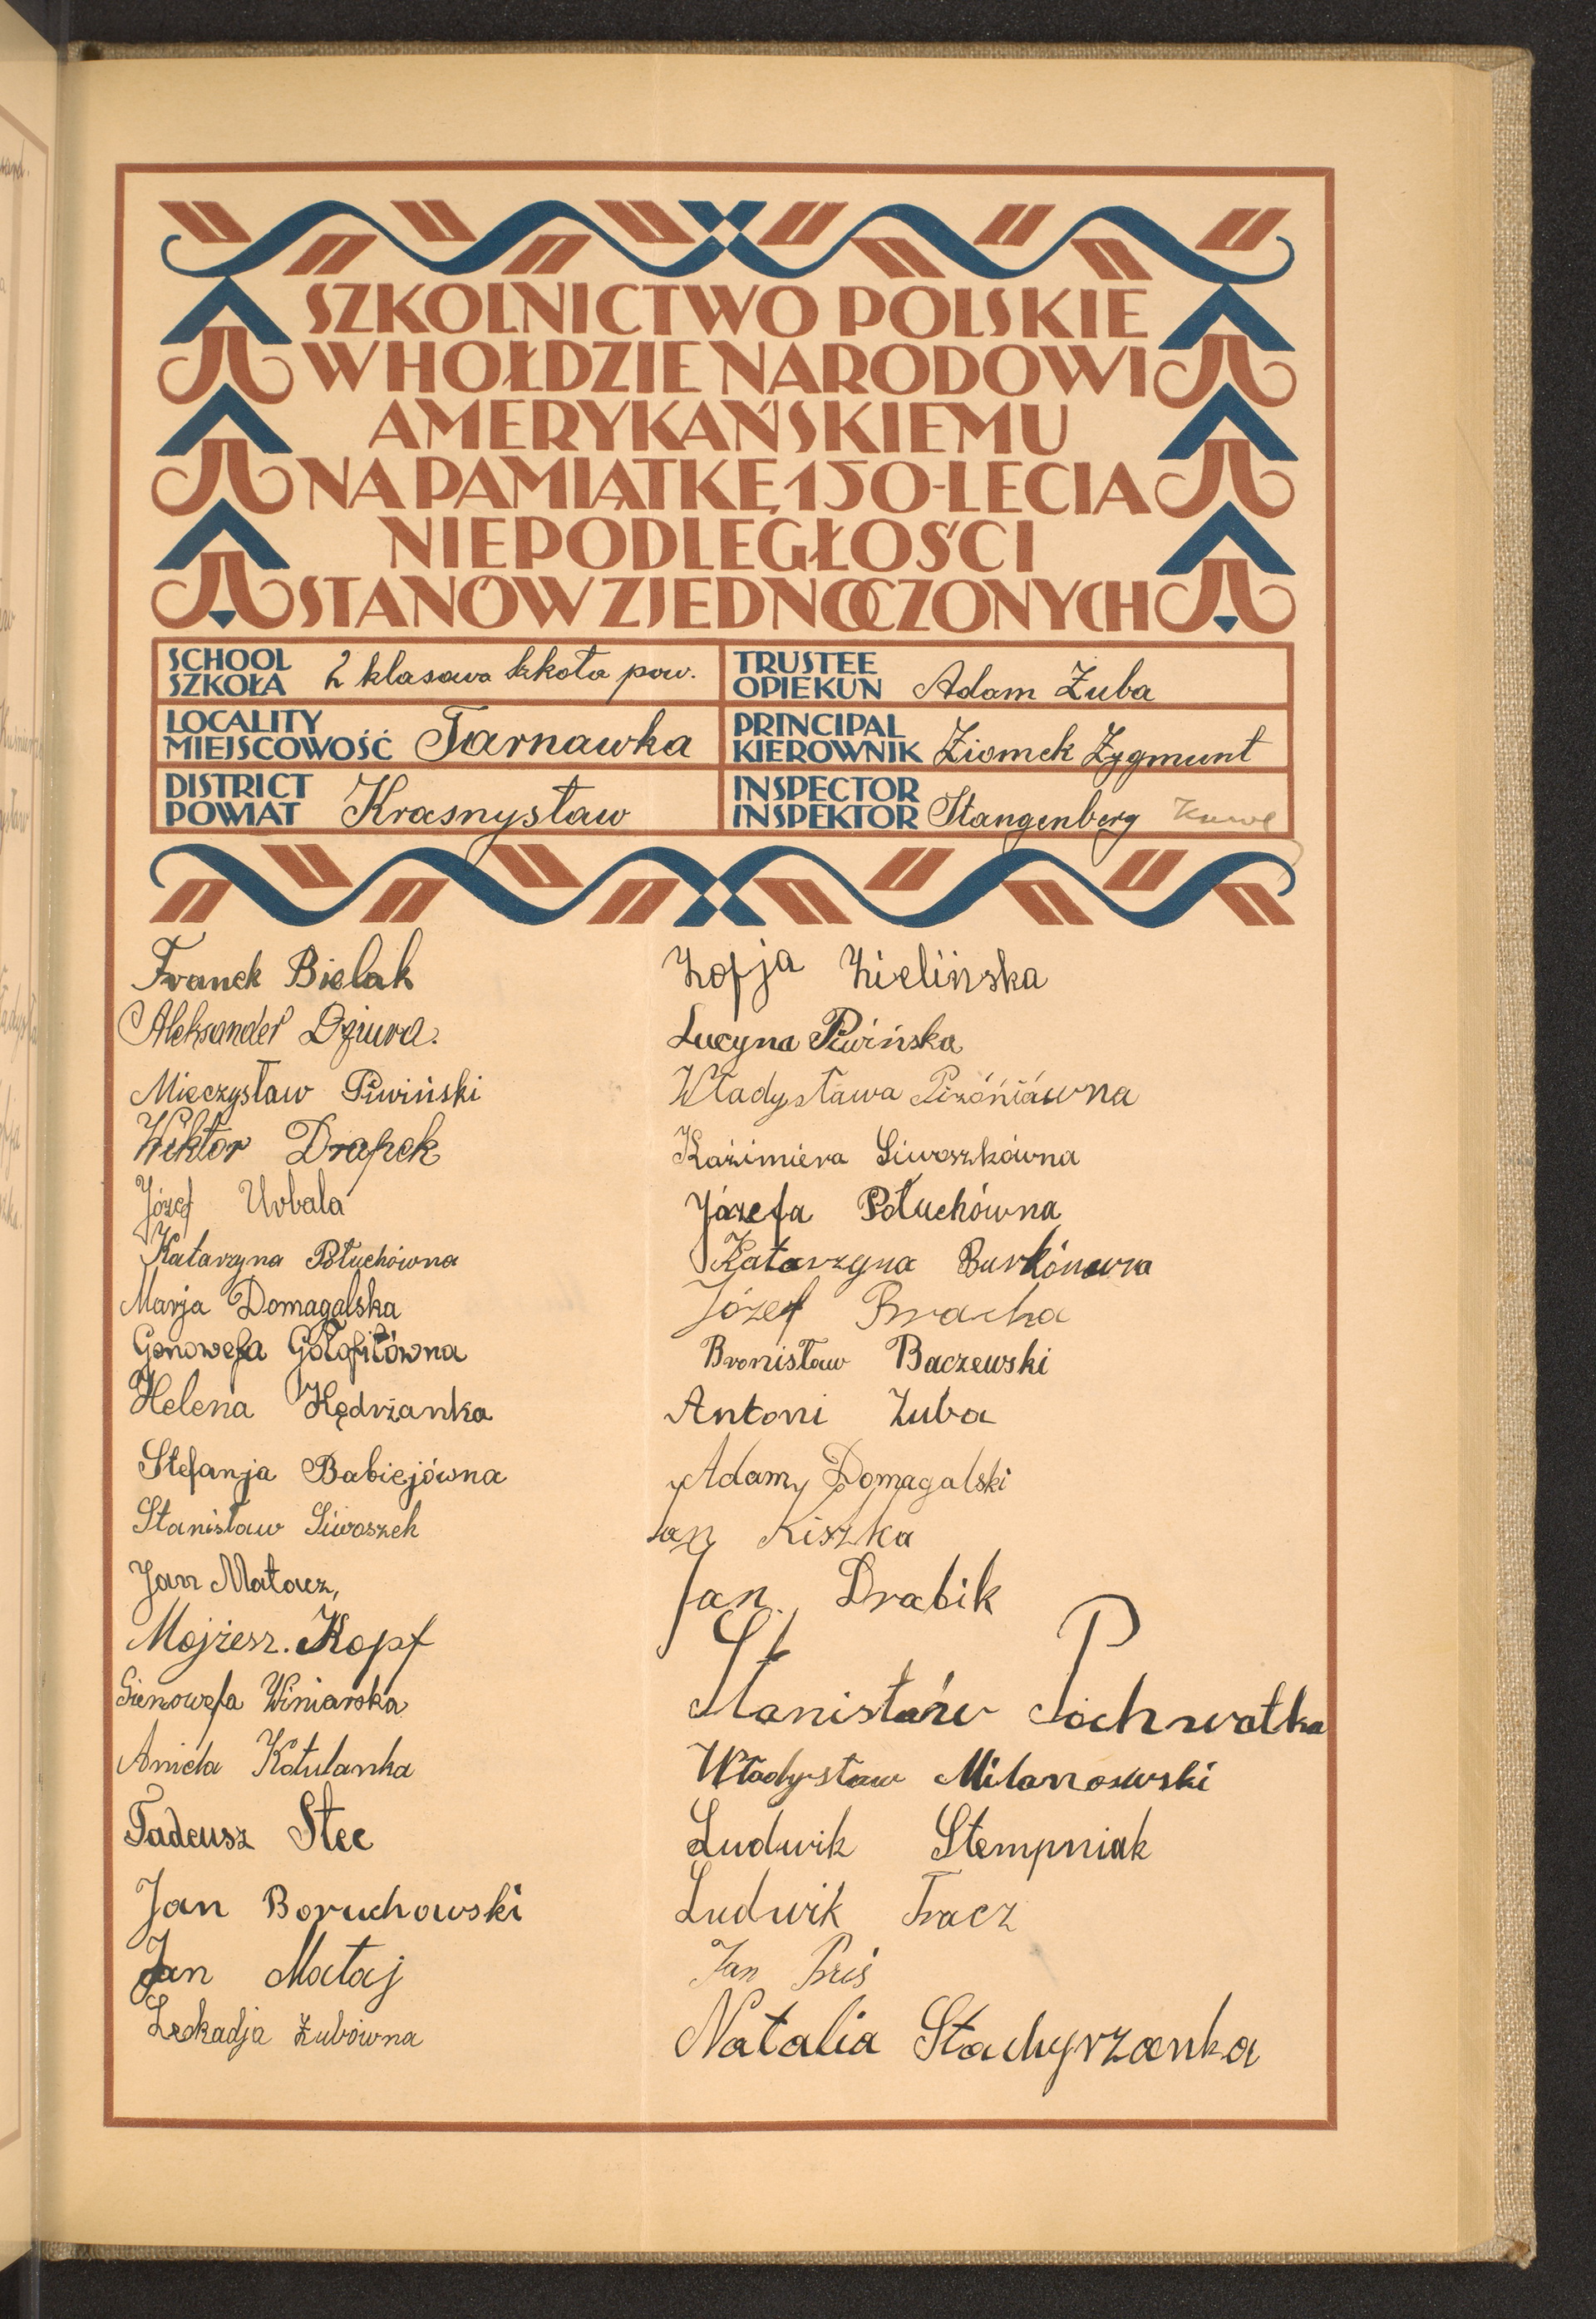 SZKOLNICTWO POLSKIE
W HOŁDZIE NARODOWI
AMERYKAŃSKIEMU
NA PAMIĄTKĘ 150-LECIA
NIEPODLEGŁOŚCI
STANÓW ZJEDNOCZONYCH
SCHOOL
SZKOŁA 2 klasowa szkoła pow.
LOCALITY
MIEJSCOWOŚĆ Tarnawka
DISTRICT
POWIAT Krasnystaw
TRUSTEE
OPIEKUN Adam Żuba
PRINCIPAL
KIEROWNIK Ziomek Zygmunt
INSPECTOR
INSPEKTOR Stangenberg
Franek Bielak
Aleksander Dziura.
Mieczysław Piwiński
Wiktor Drapek
Józef Urbala
Katarzyna Połuchówna
Marja Domagalska
Genowefa Gołofitówna
Helena Kędrzanka
Stefanja Babiejówna
Stanisław Siwoszek
Jan Matacz,
Mojżesz. Kopf
Gienowefa Winiarska
Aniela Kotulanka
Tadeusz Stec
Jan Boruchowski
Jan Mataj
Leokadja Żubówna
Zofja Zielińska
Lucyna Piwińska
Władysława
Kazimiera Siwoszkówna
Józefa Połuchówna
Katarzyna
Józef Bracha
Bronisław Baczewski
Antoni Zuba
Adam Domagalski
Jan Kiszka
Jan Drabik
Stanisław Pochwatka
Władysław Milanowski
Ludwik Stempniak
Ludwik Tracz
Jan Bris
Natalia Stachyrzanka